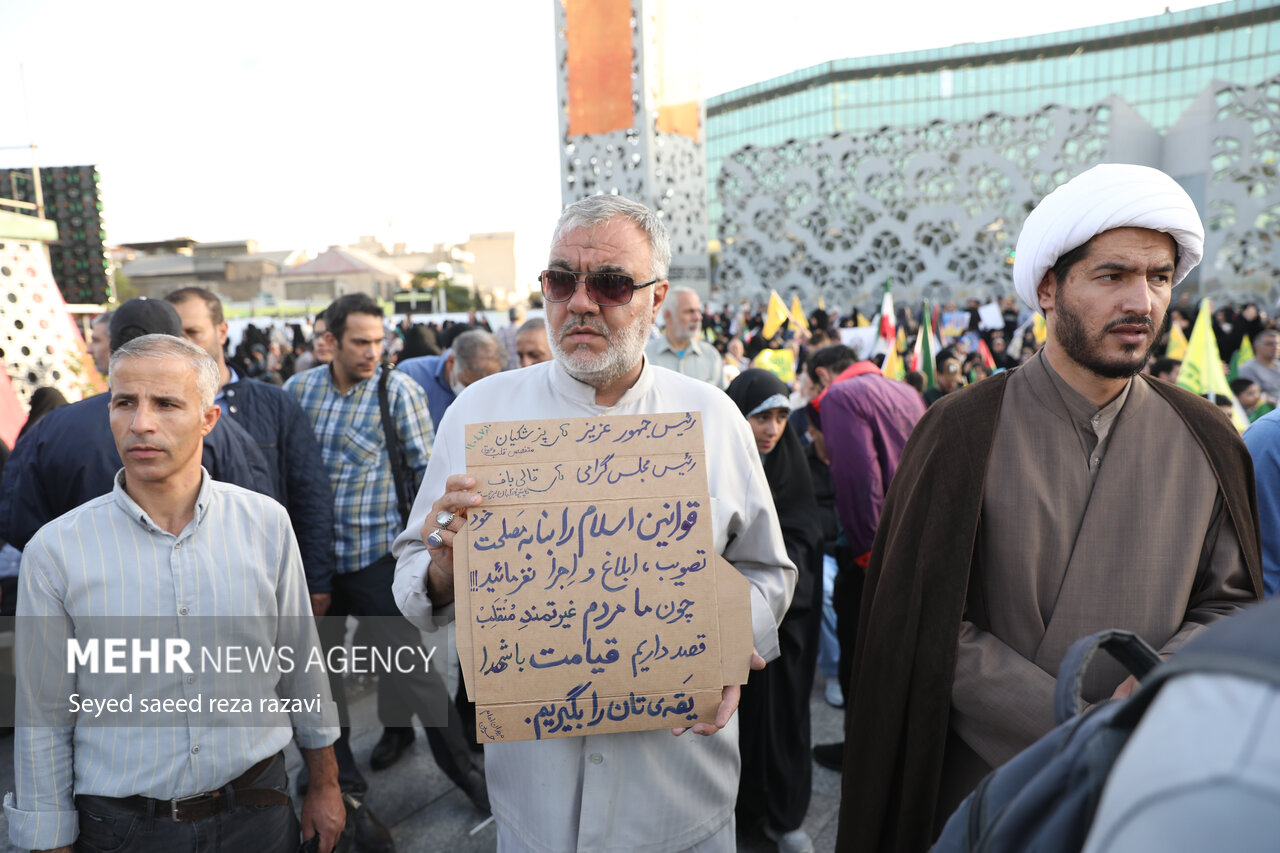 رئیس جمهور عزیز آقای پزشکیان
متخصص قلب و مغز
رئیس مجلس گرامی آقای قالی باف
قوانین اسلام را بنا به مَصلحت خود
تصویب، ابلاغ و اِجرا نفرمائید!!!
چون ما مردم غیرتمندِ مُنقَلِبْ
قصد داریم قیامت با شهدا
یَقه‌ی تان را بگیریم.
میدان امام حسین
MEHR NEWS AGENCY
Seyed saeed reza razavi